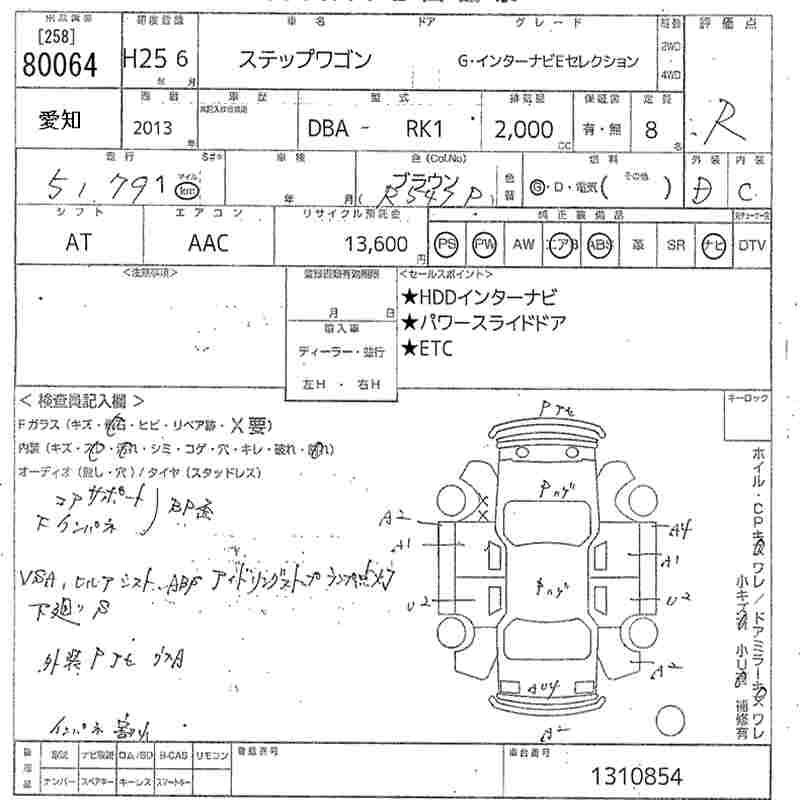 出品番号 初度登録 車名 ドア グレード 駆動 評価点
[258]
80064 H25 6 ステップワゴン G・インターナビEセレクション 2WD
4WD
年 月
愛知 車歴 型式 排気量 保証書 定員 R
2013 年 DBA - RK1 2,000 CC 有・無 8 名
走行 車検 色(Col.No) 燃料 外装 内装
51,791 マイル km 年 月 ブラウン (R543P) 色替 G・D・電気( その他 ) D C
シフト エアコン リサイクル預託金 純正装備品
AT AAC 13,600 円 PS PW AW エアB ABS 革 SR ナビ DTV
<注意事項> <セールスポイント>
★HDDインターナビ
月 日 ★パワースライドドア
輸入車 ★ETC
ディーラー・並行
左H・右H
<検査員記入欄> キーロック
Fガラス(キズ・飛石・ヒビ・リペア跡・X要)
内装(キズ・スレ・汚れ・シミ・コゲ・穴・キレ・破れ・割れ)
オーディオ(無し・穴)/タイヤ(スタッドレス)
コアサポート
下インパネ
VSA, ヒルアシスト, ABS アイドリングストップ ランプ点メツ
下廻り S
外装 Pアセ
インパネ 割れ
A2 A1 U2
A4 A1 U2 A2
AU4
A2
ホイル・CPキズワレ/ドアミラーキズワレ
小キズ 小U 補修有
ナンバー スペアキー キーレス スマートキー
B-CAS リモコン
登録番号 車台番号
1310854